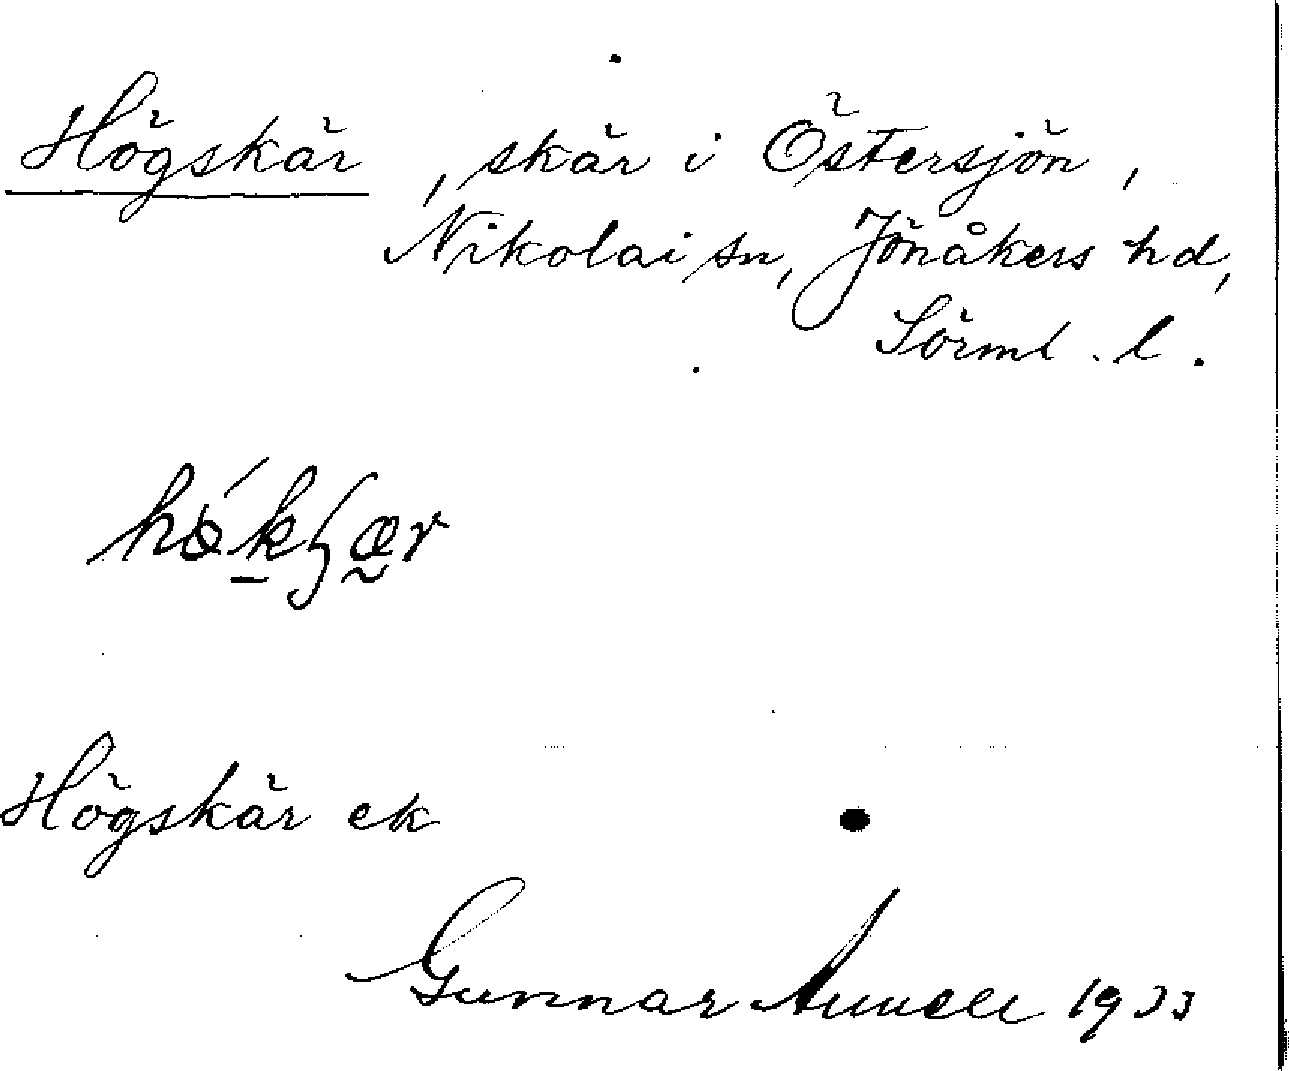 Högskär, skär i Östersjön,
Nikolai sn, Jönåkers hd,
Sörml. l.
Högskär ek
Gunnar 1933